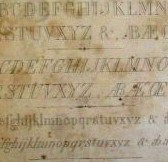 ABCDEFGHIJKLMN
STUVWXYZ & ÆŒ
BCDEFGHIJKLMN
TUVWXYZ ÆŒ
efghijklmnopqrstuvwxyz &
fghijklmnopqrstuvwxyz &